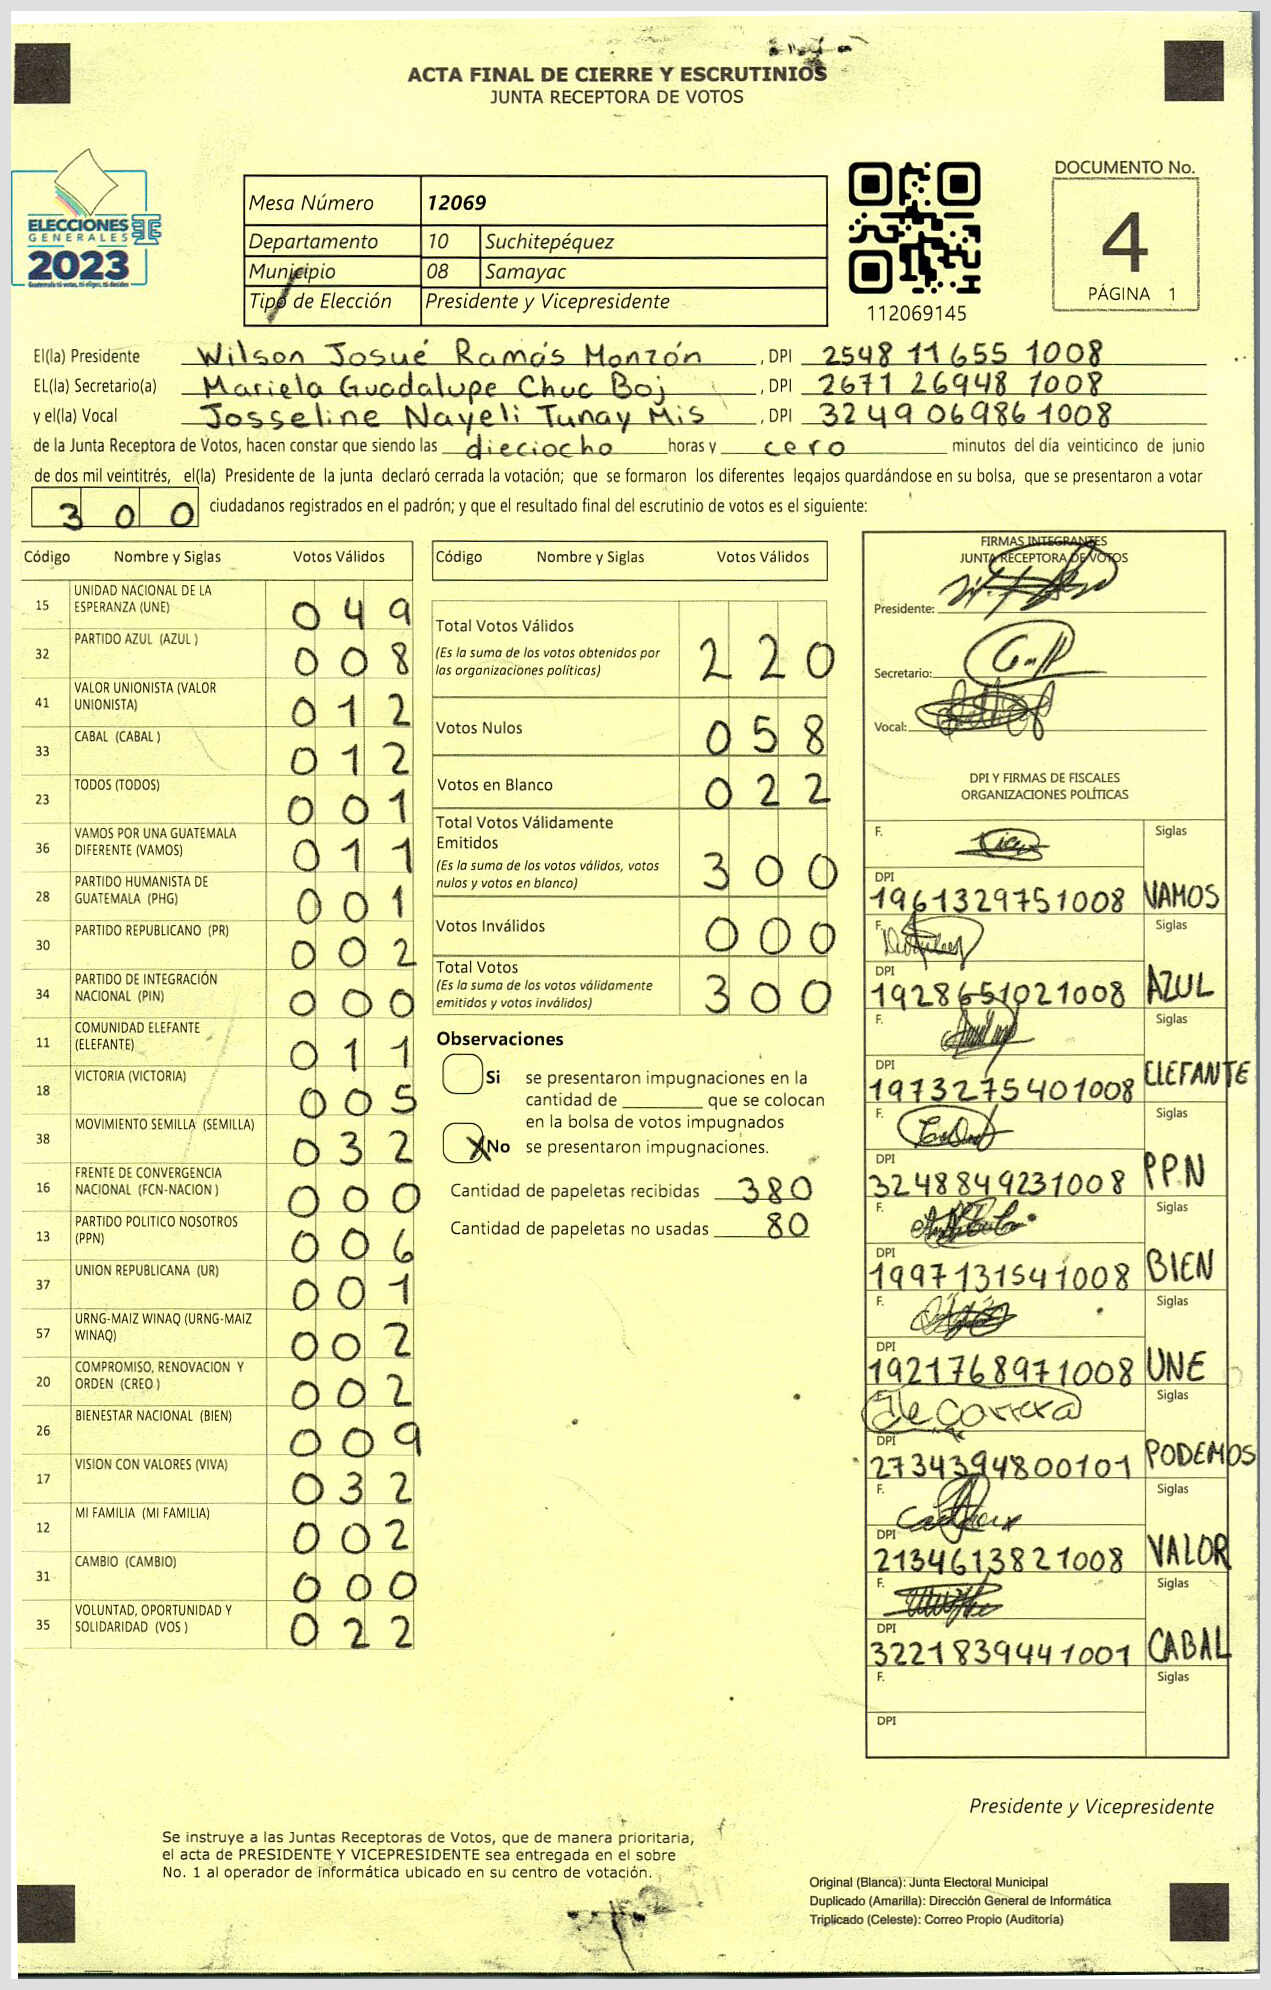 ACTA FINAL DE CIERRE Y ESCRUTINIOS
JUNTA RECEPTORA DE VOTOS
ELECCIONES
GENERALES
2023
Guatemala tú votas, tú eliges, tú decides
Mesa Número 12069
Departamento 10 Suchitepéquez
Municipio 08 Samayac
Tipo de Elección Presidente y Vicepresidente
112069145
DOCUMENTO No.
4
PÁGINA 1
El(la) Presidente Wilson Josué Ramás Monzón , DPI 2548 11655 1008
EL(la) Secretario(a) Mariela Guadalupe Chuc Boj , DPI 2671 26948 1008
y el(la) Vocal Josseline Nayeli Tunay Mis , DPI 3249 06986 1008
de la Junta Receptora de Votos, hacen constar que siendo las dieciocho horas y cero minutos del día veinticinco de junio
de dos mil veintitrés, el(la) Presidente de la junta declaró cerrada la votación; que se formaron los diferentes legajos guardándose en su bolsa, que se presentaron a votar
300 ciudadanos registrados en el padrón; y que el resultado final del escrutinio de votos es el siguiente:
Código Nombre y Siglas Votos Válidos
15 UNIDAD NACIONAL DE LA
ESPERANZA (UNE) 049
32 PARTIDO AZUL (AZUL ) 008
41 VALOR UNIONISTA (VALOR
UNIONISTA) 012
33 CABAL (CABAL ) 012
23 TODOS (TODOS) 001
36 VAMOS POR UNA GUATEMALA
DIFERENTE (VAMOS) 011
28 PARTIDO HUMANISTA DE
GUATEMALA (PHG) 001
30 PARTIDO REPUBLICANO (PR) 002
34 PARTIDO DE INTEGRACIÓN
NACIONAL (PIN) 000
11 COMUNIDAD ELEFANTE
(ELEFANTE) 011
18 VICTORIA (VICTORIA) 005
38 MOVIMIENTO SEMILLA (SEMILLA) 032
16 FRENTE DE CONVERGENCIA
NACIONAL (FCN-NACION ) 000
13 PARTIDO POLITICO NOSOTROS
(PPN) 006
37 UNION REPUBLICANA (UR) 001
57 URNG-MAIZ WINAQ (URNG-MAIZ
WINAQ) 002
20 COMPROMISO, RENOVACION Y
ORDEN (CREO ) 002
26 BIENESTAR NACIONAL (BIEN) 009
17 VISION CON VALORES (VIVA) 032
12 MI FAMILIA (MI FAMILIA) 002
31 CAMBIO (CAMBIO) 000
35 VOLUNTAD, OPORTUNIDAD Y
SOLIDARIDAD (VOS ) 022
Código Nombre y Siglas Votos Válidos
Total Votos Válidos
(Es la suma de los votos obtenidos por
las organizaciones políticas) 220
Votos Nulos 058
Votos en Blanco 022
Total Votos Válidamente
Emitidos
(Es la suma de los votos válidos, votos
nulos y votos en blanco) 300
Votos Inválidos 000
Total Votos
(Es la suma de los votos válidamente
emitidos y votos inválidos) 300
Observaciones
Si se presentaron impugnaciones en la
cantidad de ________ que se colocan
en la bolsa de votos impugnados
X No se presentaron impugnaciones.
Cantidad de papeletas recibidas 380
Cantidad de papeletas no usadas 80
FIRMAS INTEGRANTES
JUNTA RECEPTORA DE VOTOS
Presidente:
Secretario:
Vocal:
DPI Y FIRMAS DE FISCALES
ORGANIZACIONES POLÍTICAS
F. Siglas
DPI
1961329751008 VAMOS
F. Siglas
DPI
1928651021008 AZUL
F. Siglas
DPI
1973275401008 ELEFANTE
F. Siglas
DPI
3248849231008 PPN
F. Siglas
DPI
1997131541008 BIEN
F. Siglas
DPI
1921768971008 UNE
F. Siglas
DPI
2734394800101 PODEMOS
F. Siglas
DPI
2134613821008 VALOR
F. Siglas
DPI
3221839441001 CABAL
F. Siglas
DPI
Presidente y Vicepresidente
Se instruye a las Juntas Receptoras de Votos, que de manera prioritaria,
el acta de PRESIDENTE Y VICEPRESIDENTE sea entregada en el sobre
No. 1 al operador de informática ubicado en su centro de votación.
Original (Blanca): Junta Electoral Municipal
Duplicado (Amarilla): Dirección General de Informática
Triplicado (Celeste): Correo Propio (Auditoría)